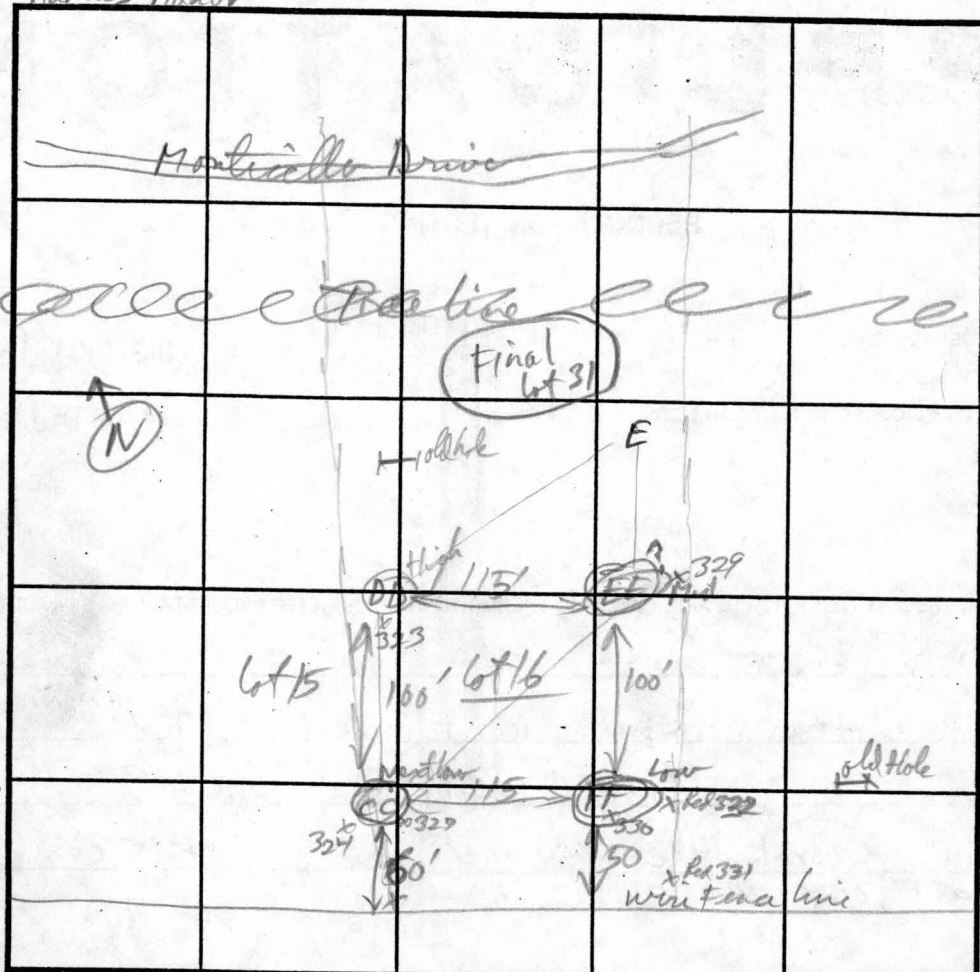 Monticello Drive
Tree line
Final
Lot 31
N
old hole
E
High
DD
115'
EE
329
Mid
323
Lot 15
100'
Lot 16
100'
Next low
CC
115
Low
FF
old Hole
324
330
50
Red 331
wire Fence line